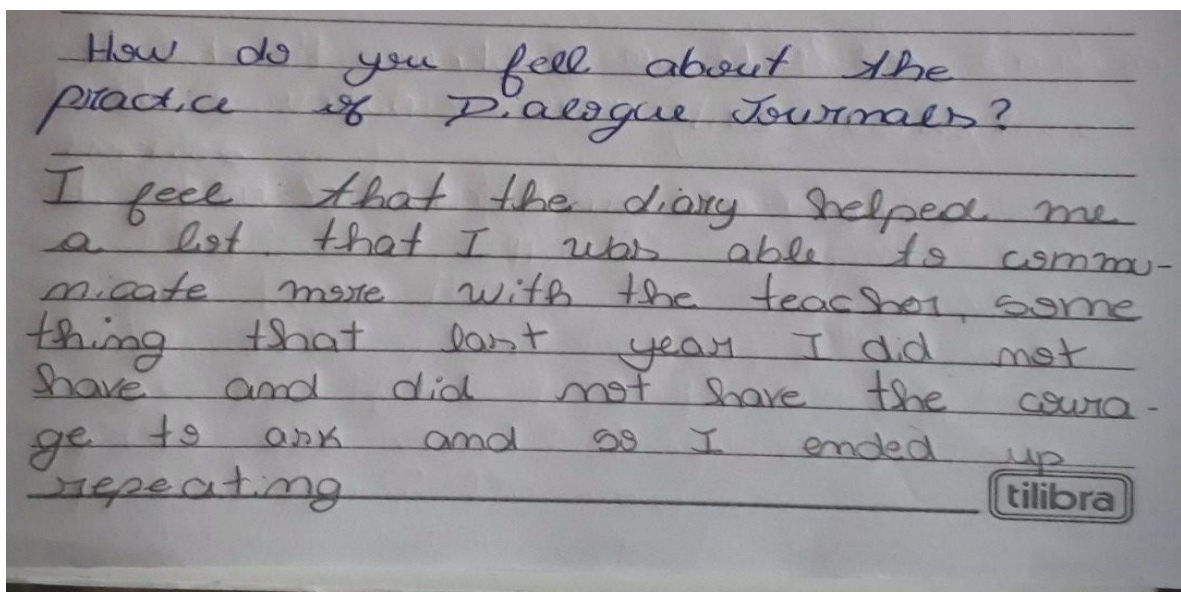 How do you feel about the
practice of Dialogue Journals?
I feel that the diary helped me
a lot that I was able to commu-
nicate more with the teacher, some
thing that last year I did not
have and did not have the coura-
ge to ask and so I ended up
repeating
tilibra